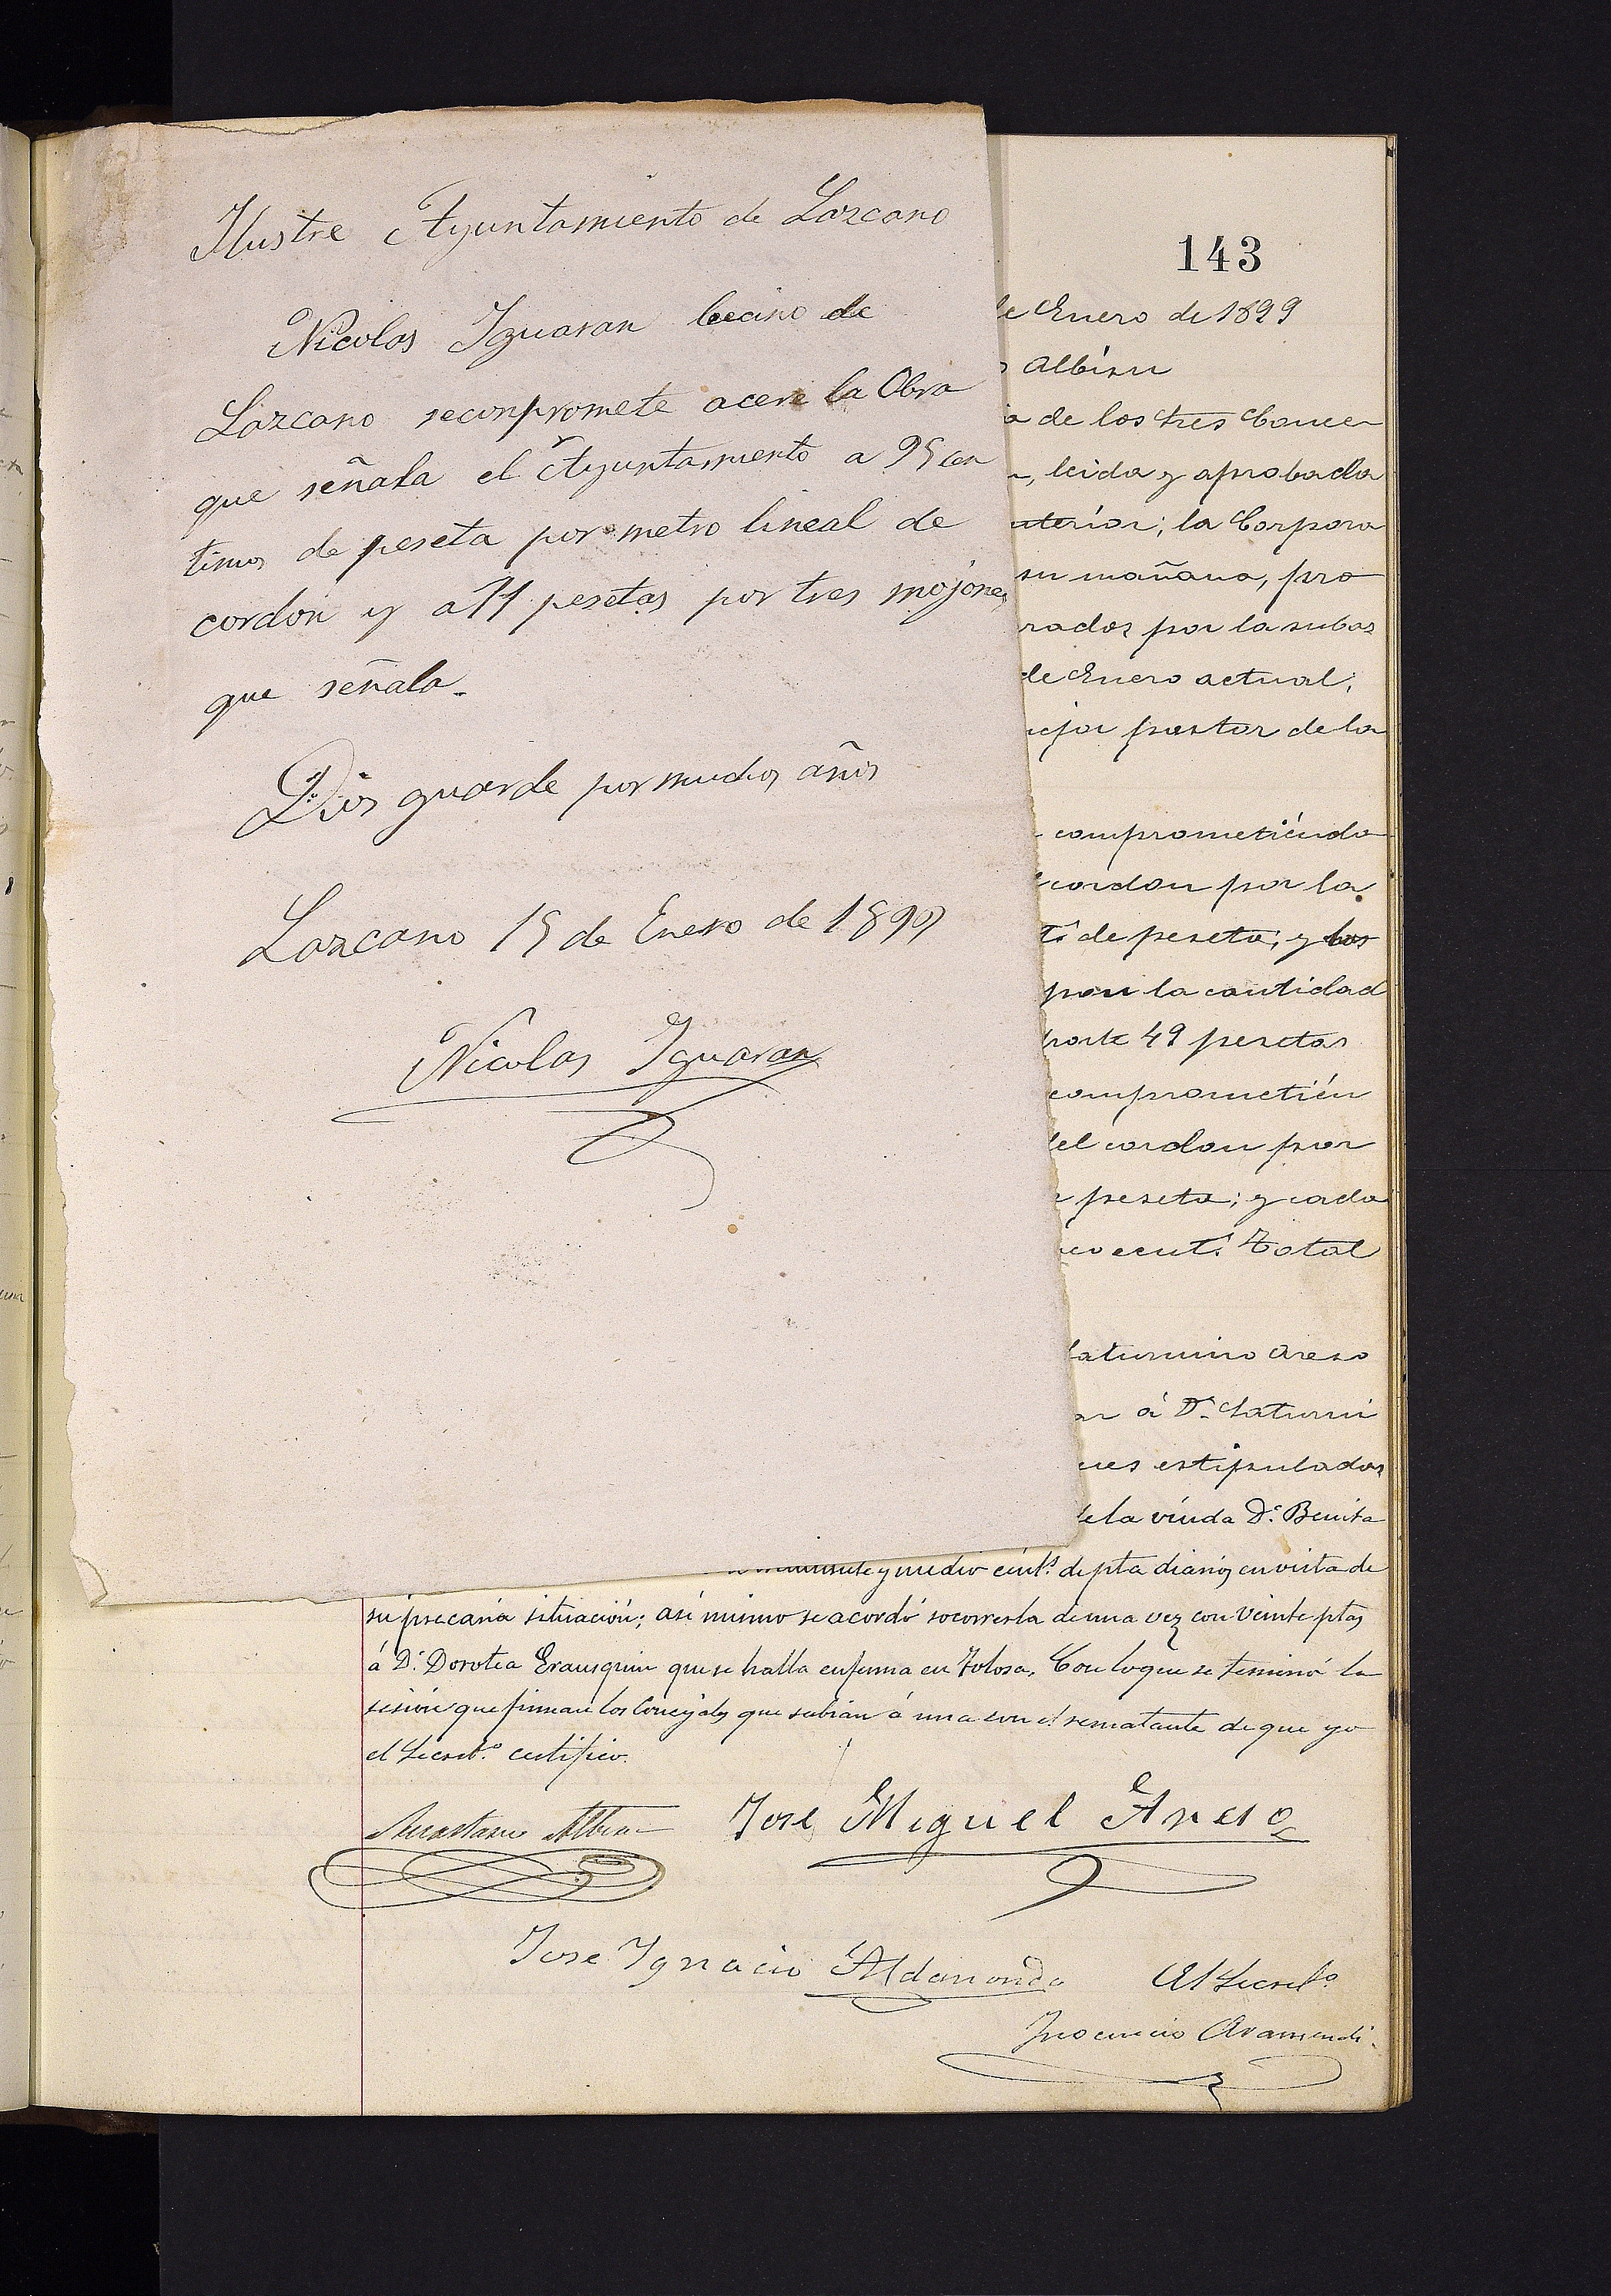 Ilustre Ayuntamiento de Lazcano
Nicolas Iguaran becino de
Lazcano seconpromete acere la Obra
que señala el Ayuntamiento a 95 cen
timos de peseta por metro lineal de
cordon y a 11 pesetas por tres mojones
que señala.
Dios guarde por muchos años
Lazcano 15 de Enero de 1899
Nicolas Iguaran
143
de Enero de 1899
Albisu
de los tres Conce
leida y aprobada
anterior; la Corpora
su mañana, pro
rados por la subas
de Enero actual,
mejor postor de la
comprometiendo
cordon por la
de peseta; y los
por la cantidad
49 pesetas
comprometién
del cordon por
peseta; y cada
cent.s Total
Saturnino Areso
á D.n Saturni
estipulados
de la viuda D.ª Benita
y medio cént.s de pta diarios en vista de
su precaria situación; así mismo se acordó socorrerla de una vez con veinte ptas
á D.ª Dorotea Erausquin que se halla enferma en Tolosa. Con lo que se terminó la
sesión que firman los Concejales que sabian á una con el rematante de que yo
el Secret.º certifico.
Anastasio Albisu
José Miguel Areso
Jose Ignacio Aldanondo
El Secret.º
Inocencio Aramendi.